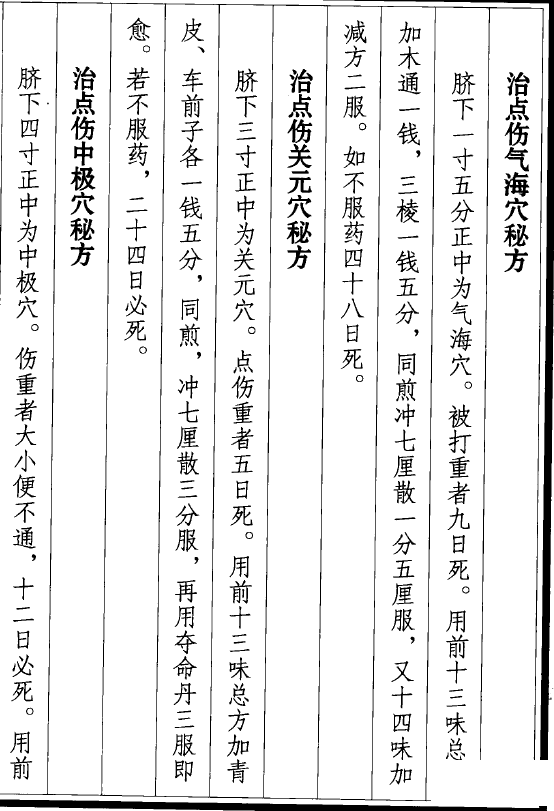 治点伤气海穴秘方
脐下一寸五分正中为气海穴。被打重者九日死。用前十三味总
加木通一钱，三棱一钱五分，同煎冲七厘散一分五厘服，又十四味加
减方二服。如不服药四十八日死。
治点伤关元穴秘方
脐下三寸正中为关元穴。点伤重者五日死。用前十三味总方加青
皮、车前子各一钱五分，同煎，冲七厘散三分服，再用夺命丹三服即
愈。若不服药，二十四日必死。
治点伤中极穴秘方
脐下四寸正中为中极穴。伤重者大小便不通，十二日必死。用前